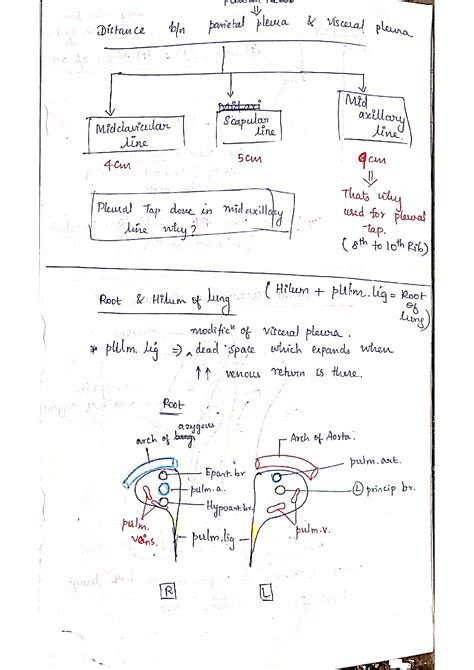 Distance b/n parietal pleura & visceral pleura
Midclavicular line
4cm
Scapular line
5cm
Mid axillary line.
9cm
Thats why used for pleural tap.
(8th to 10th Rib)
Pleural Tap done in midaxillary line why?
Root & Hilum of lung
(Hilum + pulm.lig = Root of lung)
modificn of visceral pleura.
* pulm. lig => dead space which expands when
↑↑ venous return is there.
Root
azygous
arch of
Epart.br
pulm.a.
Hypoart.br.
pulm. veins.
pulm.lig
Arch of Aorta.
pulm.art.
(L) princip br.
pulm.v.
R
L